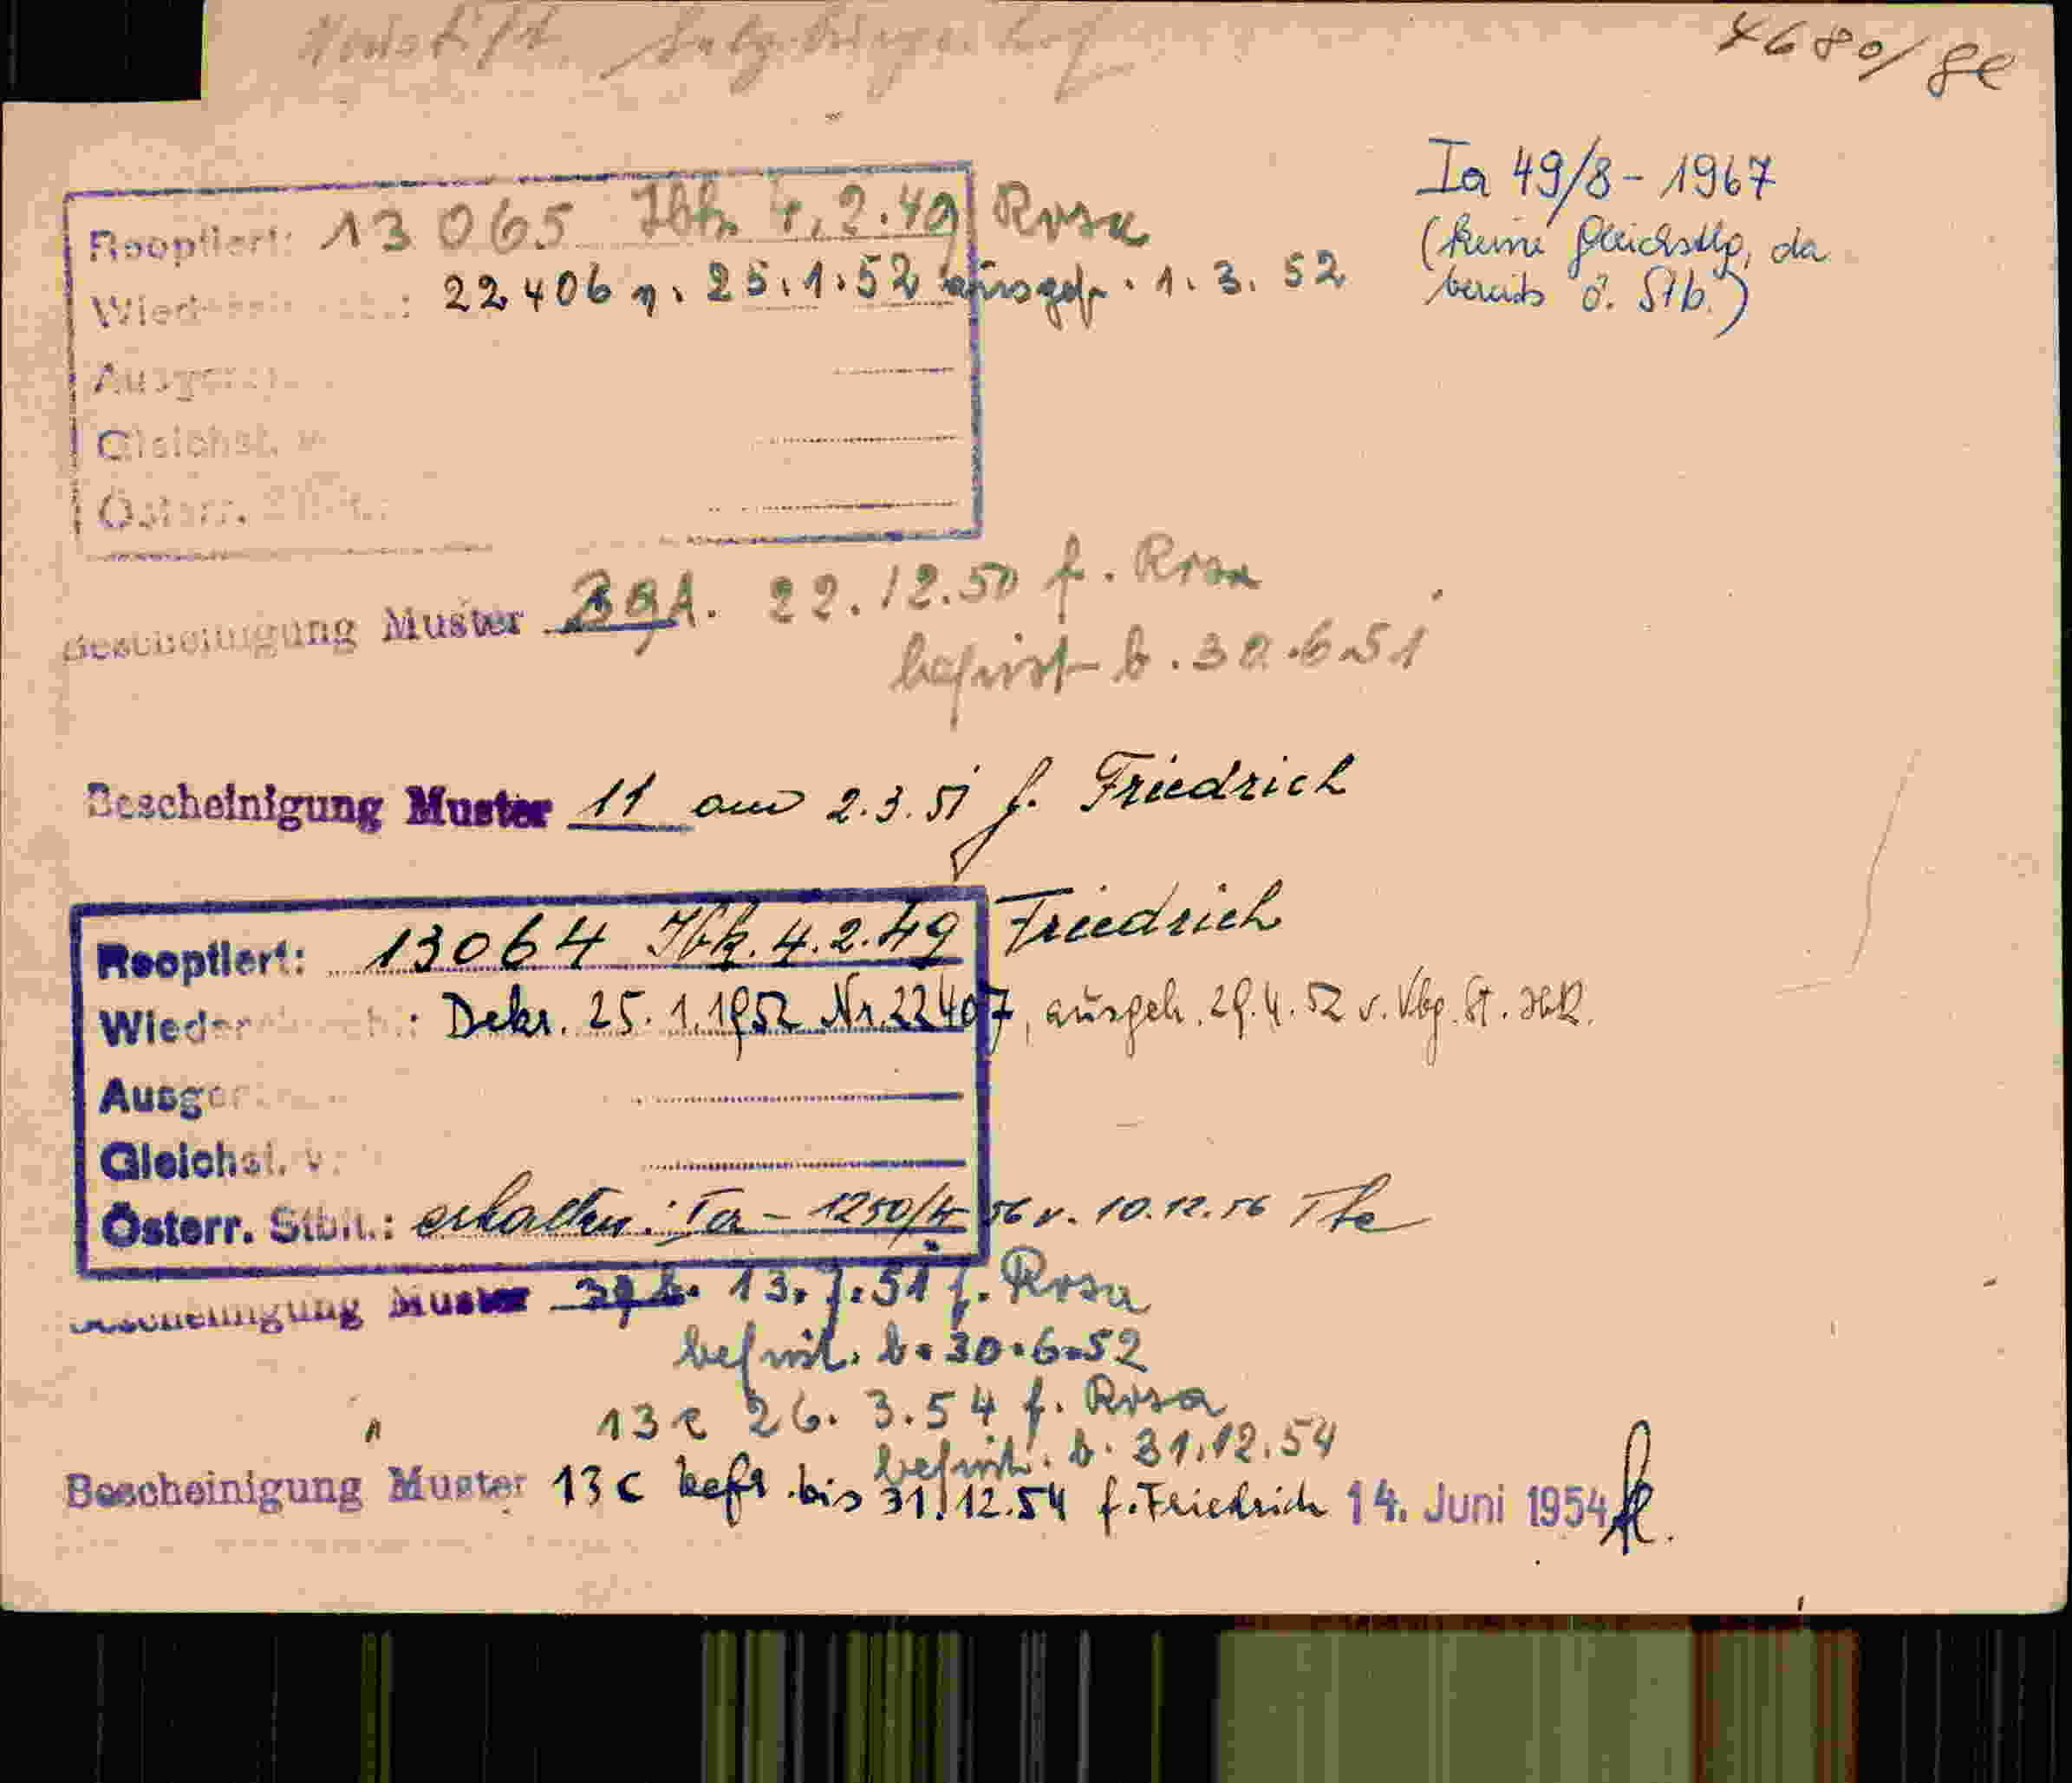 4680/
Ia 49/8 - 1967
(keine Gleichstlg, da
bereits ö. Stb.)
Reoptiert: 13065 Ibk. 4.2.49 Rosa
22406 v. 25.1.52 ausgef. 1.3.52
Österr.
Bescheinigung Muster 39A. 22.12.50 f. Rosa
befrist b. 30.6.51
Bescheinigung Muster 11 am 2.3.51 f. Friedrich
Reoptiert: 13064 Ibk. 4.2.49 Friedrich
Wieder : Dekr. 25.1.1952 Nr. 22407, ausgeh. 29.4.52 v. Vbg. St. Ibk.
Gleichst. v.
Österr. Stbü.: erhalten: Ia - 1250/4 56 v. 10.12.56
Bescheinigung Muster 13.7.51 f. Rosa
befrist. b. 30.6.52
" 13c 26.3.54 f. Rosa
befrist. b. 31.12.54
Bescheinigung Muster 13c befr. bis 31.12.54 f. Friedrich 14. Juni 1954